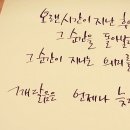 오랜시간이 지난 후
그 순간을 돌아보
그 순간이 지나도
깨달음은 언제나 늦